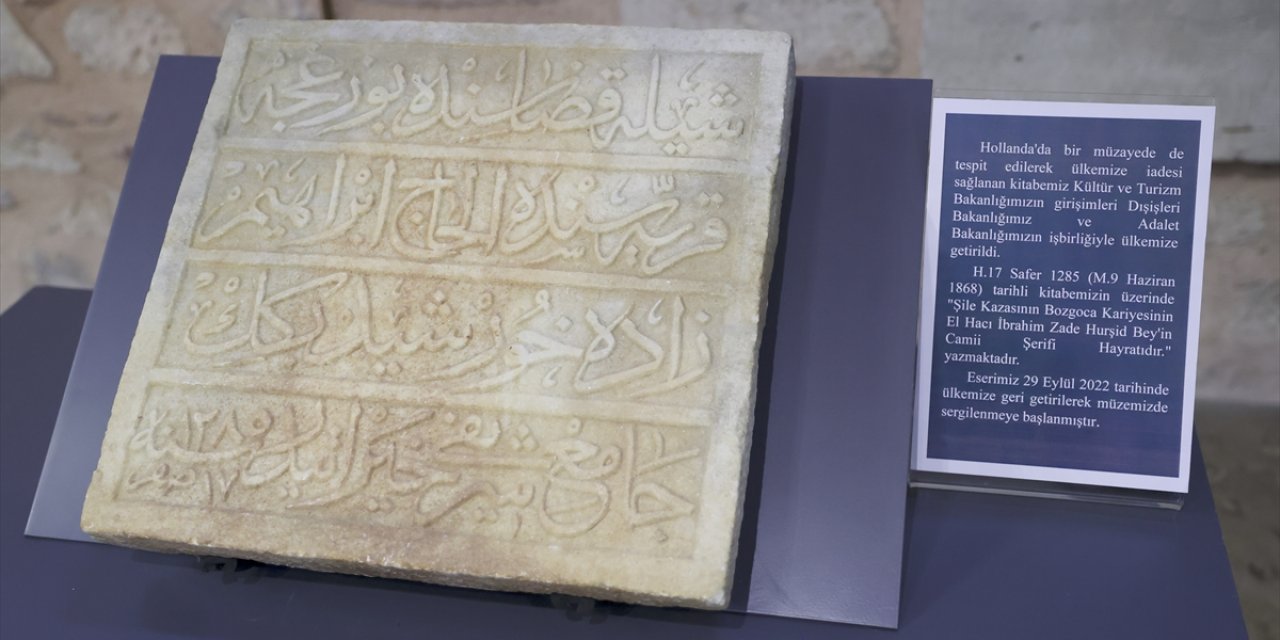 شيله قضاسنده بوزغجه
قريه سنده الحاج ابراهيم
زاده خورشيد بكك
جامع شريف خيراتيدر سنه ١٢٨٥
١٧ صفر
Hollanda'da bir müzayede de
tespit edilerek ülkemize iadesi
sağlanan kitabemiz Kültür ve Turizm
Bakanlığımızın girişimleri Dışişleri
Bakanlığımız ve Adalet
Bakanlığımızın işbirliğiyle ülkemize
getirildi.
H.17 Safer 1285 (M.9 Haziran
1868) tarihli kitabemizin üzerinde
"Şile Kazasının Bozgoca Kariyesinin
El Hacı İbrahim Zade Hurşid Bey'in
Camii Şerifi Hayratıdır."
yazmaktadır.
Eserimiz 29 Eylül 2022 tarihinde
ülkemize geri getirilerek müzemizde
sergilenmeye başlanmıştır.